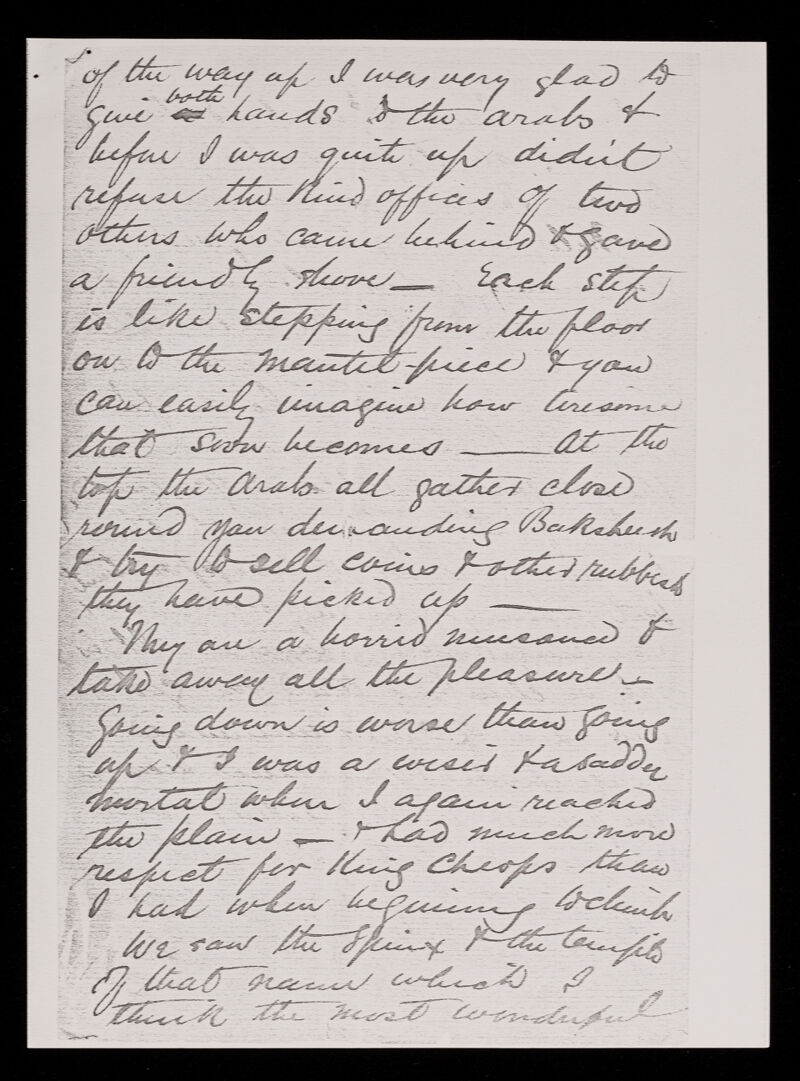 of the way up I was very glad to
give both hands to the arabs &
before I was quite up didn't
refuse the kind offices of two
others who came behind & gave
a friendly shove — Each step
is like stepping from the floor
on to the mantel-piece & you
can easily imagine how tiresome
that soon becomes — At the
top the Arabs all gather close
round you demanding Baksheesh
& try to sell coins & other rubbish
they have picked up —
They are a horrid nuisance &
take away all the pleasure —
Going down is worse than going
up & I was a wiser & a sadder
mortal when I again reached
the plain — & had much more
respect for King Cheops than
I had when begining to climb
We saw the Spinx & the temple
of that name which I
think the most wonderful